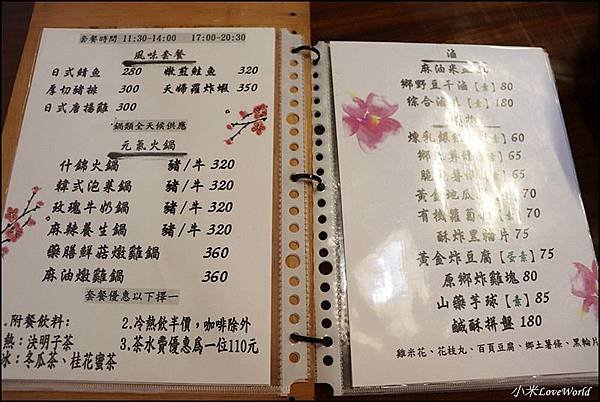 套餐時間 11:30-14:00 17:00-20:30
風味套餐
日式鯖魚 280 嫩煎鮭魚 320
厚切豬排 300 天婦羅炸蝦 350
日式唐揚雞 300
鍋類全天候供應
元氣火鍋
什錦火鍋 豬/牛 320
韓式泡菜鍋 豬/牛 320
玫瑰牛奶鍋 豬/牛 320
麻辣養生鍋 豬/牛 320
藥膳鮮菇燉雞鍋 360
麻油燉雞鍋 360
套餐優惠以下擇一
.附餐飲料:
熱:決明子茶
冰:冬瓜茶、桂花蜜茶
2.冷熱飲半價,咖啡除外
3.茶水費優惠為一位110元
滷
麻油米血
鄉野豆干滷【素】80
綜合滷【素】180
煉乳銀【素】65
鄉【素】65
脆【素】
黃金地瓜 70
有機蘿蔔 70
酥炸黑輪片 75
黃金炸豆腐【蛋素】75
原鄉炸雞塊 80
山藥芋球【素】85
鹹酥拼盤 180
雞米花、花枝丸、百頁豆腐、鄉土薯條、黑輪片
小米LoveWorld